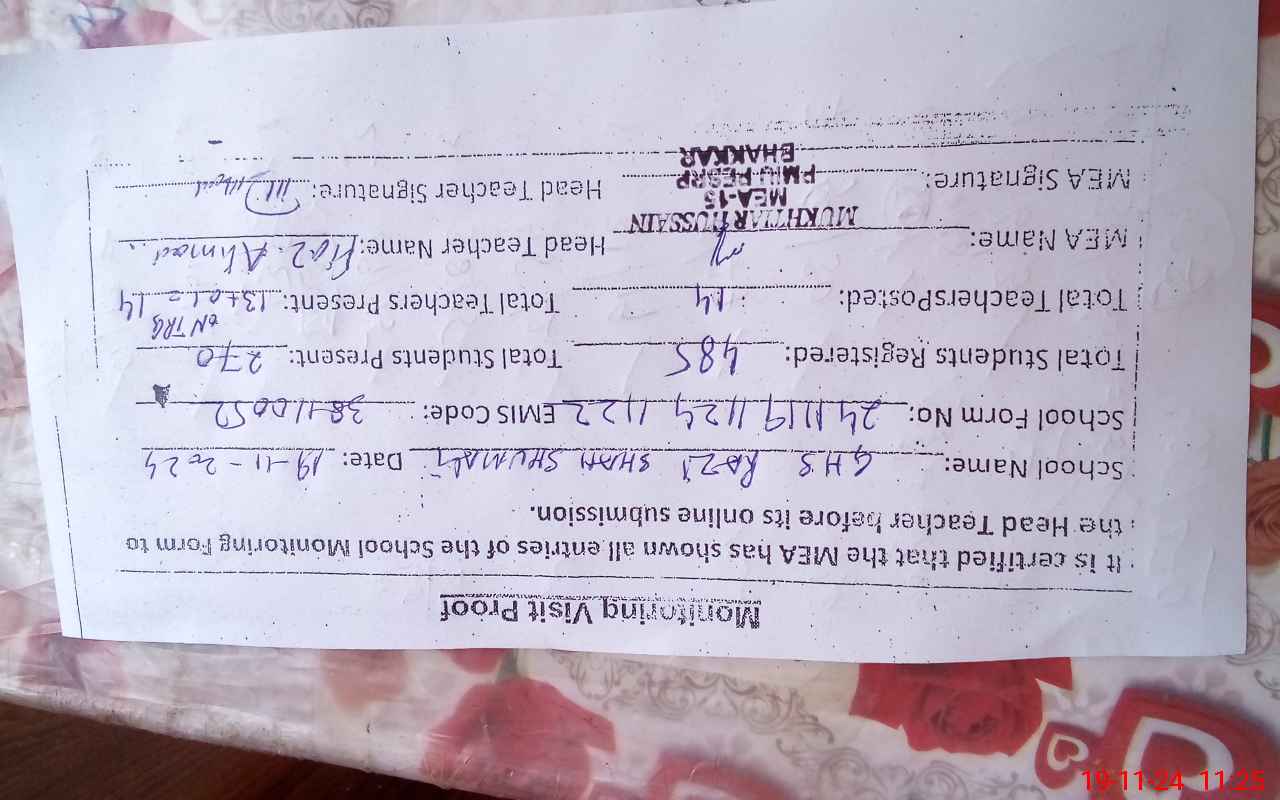 Monitoring Visit Proof
It is certified that the MEA has shown all entries of the School Monitoring Form to
the Head Teacher before its online submission.
School Name: GHS RAZI SHAH SHUMALI Date: 19-11-2024
School Form No: 241119 1124 1122 EMIS Code: 38110052
Total Students Registered: 485 Total Students Present: 270
ON TRG
Total TeachersPosted: 14 Total Teachers Present: 13+01=14
MEA Name: Head Teacher Name: Ahmad
MUKHTIAR HUSSAIN
MEA-15
MEA Signature: Head Teacher Signature:
PMIU-PESRP
BHAKKAR
19-11-24 11:25